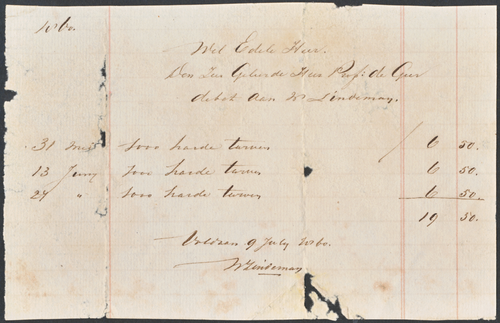 1860.
Wel Edele Heer.
Den Zeer Geleerde Heer Prof: de Geer
debet aan W Lindeman.
31 Mei 1000 harde turven / 6 50.
13 Juny 1000 harde turven 6 50.
27 " 1000 harde turven 6 50.
19 50.
Voldaan 9 July 1860.
W Lindeman